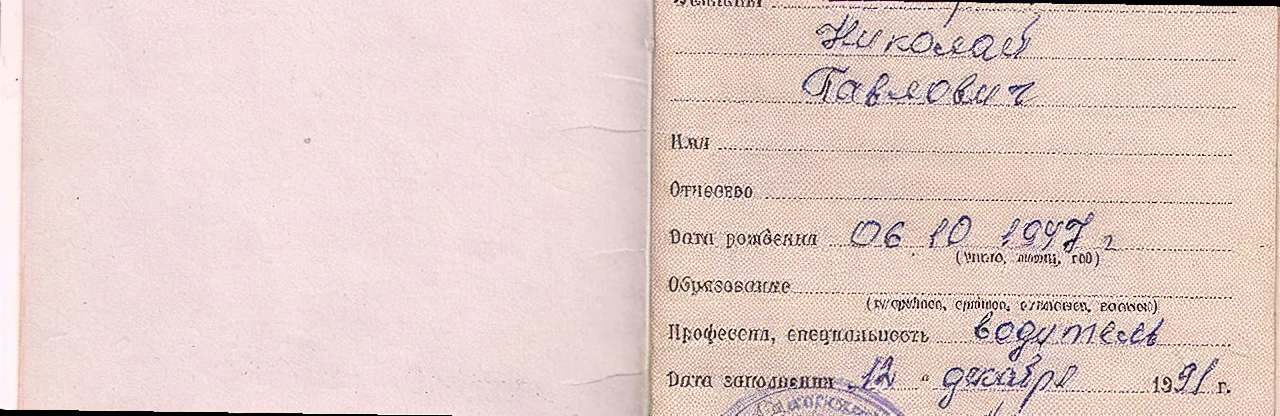 Фамилия
Николай
Павлович
Имя
Отчество
Дата рождения 06 10 1947 г
(число, месяц, год)
Образование
Профессия, специальность водитель
Дата заполнения 12 " декабря 1991 г.